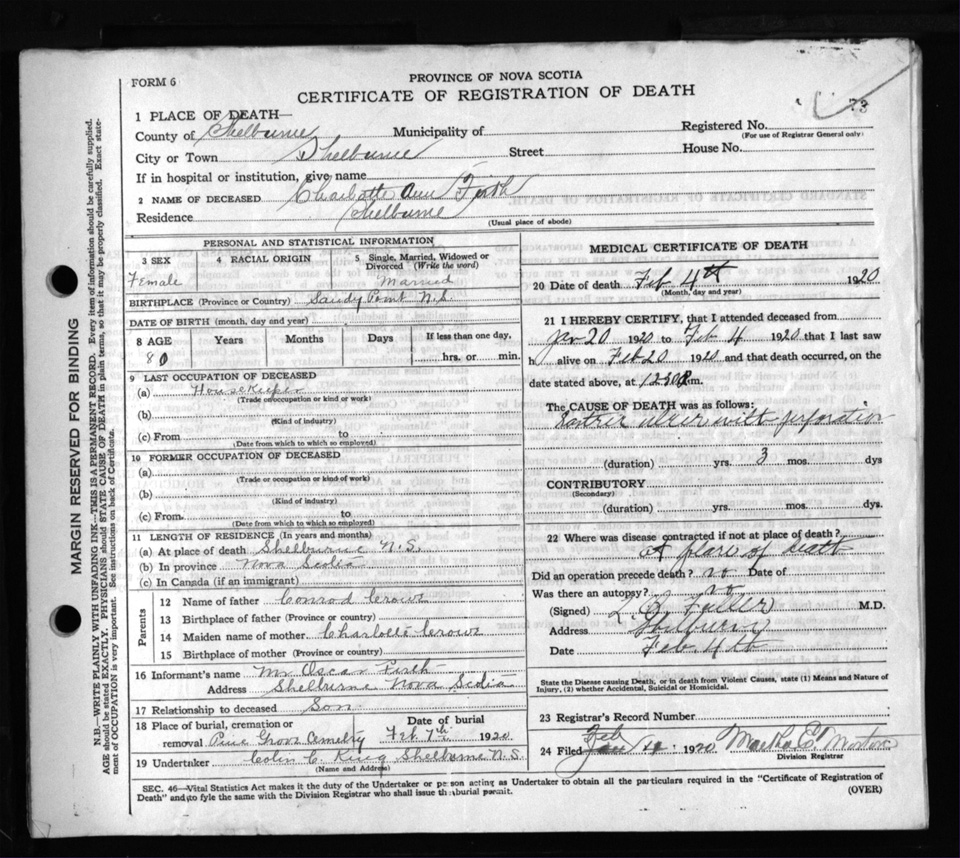 FORM 6
PROVINCE OF NOVA SCOTIA
CERTIFICATE OF REGISTRATION OF DEATH
73
1 PLACE OF DEATH—
County of Shelburne Municipality of Registered No.
(For use of Registrar General only)
City or Town Shelburne Street House No.
If in hospital or institution, give name
2 NAME OF DECEASED Charlotte Ann Firth
Residence Shelburne
(Usual place of abode)
PERSONAL AND STATISTICAL INFORMATION
3 SEX
Female
4 RACIAL ORIGIN
5 Single, Married, Widowed or Divorced (Write the word)
Married
BIRTHPLACE (Province or Country) Sandy Point N.S.
DATE OF BIRTH (month, day and year)
8 AGE Years Months Days If less than one day,
80 hrs. or min.
9 LAST OCCUPATION OF DECEASED
(a) Housekeeper
(Trade or occupation or kind or work)
(b)
(Kind of industry)
(c) From to
(Date from which to which so employed)
10 FORMER OCCUPATION OF DECEASED
(a)
(Trade or occupation or kind of work)
(b)
(Kind of industry)
(c) From to
(Date from which to which so employed)
11 LENGTH OF RESIDENCE (In years and months)
(a) At place of death Shelburne N.S.
(b) In province Nova Scotia
(c) In Canada (if an immigrant)
Parents
12 Name of father Conrad Crowe
13 Birthplace of father (Province or country)
14 Maiden name of mother Charlotte Crowe
15 Birthplace of mother (Province or country)
16 Informant's name Mr Oscar Firth
Address Shelburne Nova Scotia
17 Relationship to deceased Son
18 Place of burial, cremation or removal Pine Grove Cemetery
Date of burial
Feb 7th 1920
19 Undertaker Colin C. King Shelburne N.S.
(Name and Address)
MEDICAL CERTIFICATE OF DEATH
20 Date of death Feb 4th 1920
(Month, day and year)
21 I HEREBY CERTIFY, that I attended deceased from
Jan 20 1920 to Feb 4 1920 that I last saw
h alive on Feb 20 1920 and that death occurred, on the
date stated above, at 12.30 P.m.
The CAUSE OF DEATH was as follows:
Gastric ulcer with perforation
(duration) yrs. 3 mos. dys
CONTRIBUTORY
(Secondary)
(duration) yrs. mos. dys.
22 Where was disease contracted if not at place of death?
At place of death
Did an operation precede death? no Date of
Was there an autopsy? no
(Signed) L. O. Fuller M.D.
Address Shelburne
Date Feb. 4th
State the Disease causing Death, or in death from Violent Causes, state (1) Means and Nature of Injury, (2) whether Accidental, Suicidal or Homicidal.
23 Registrar's Record Number
Feb
24 Filed 1920 Martha E. Morton
Division Registrar
SEC. 46—Vital Statistics Act makes it the duty of the Undertaker or person acting as Undertaker to obtain all the particulars required in the "Certificate of Registration of
Death" and to fyle the same with the Division Registrar who shall issue the burial permit.
(OVER)
MARGIN RESERVED FOR BINDING
N.B.—WRITE PLAINLY WITH UNFADING INK—THIS IS A PERMANENT RECORD. Every item of information should be carefully supplied.
AGE should be stated EXACTLY. PHYSICIANS should STATE CAUSE OF DEATH in plain terms, so that it may be properly classified. Exact statement
of OCCUPATION is very important. See instructions on back of Certificate.